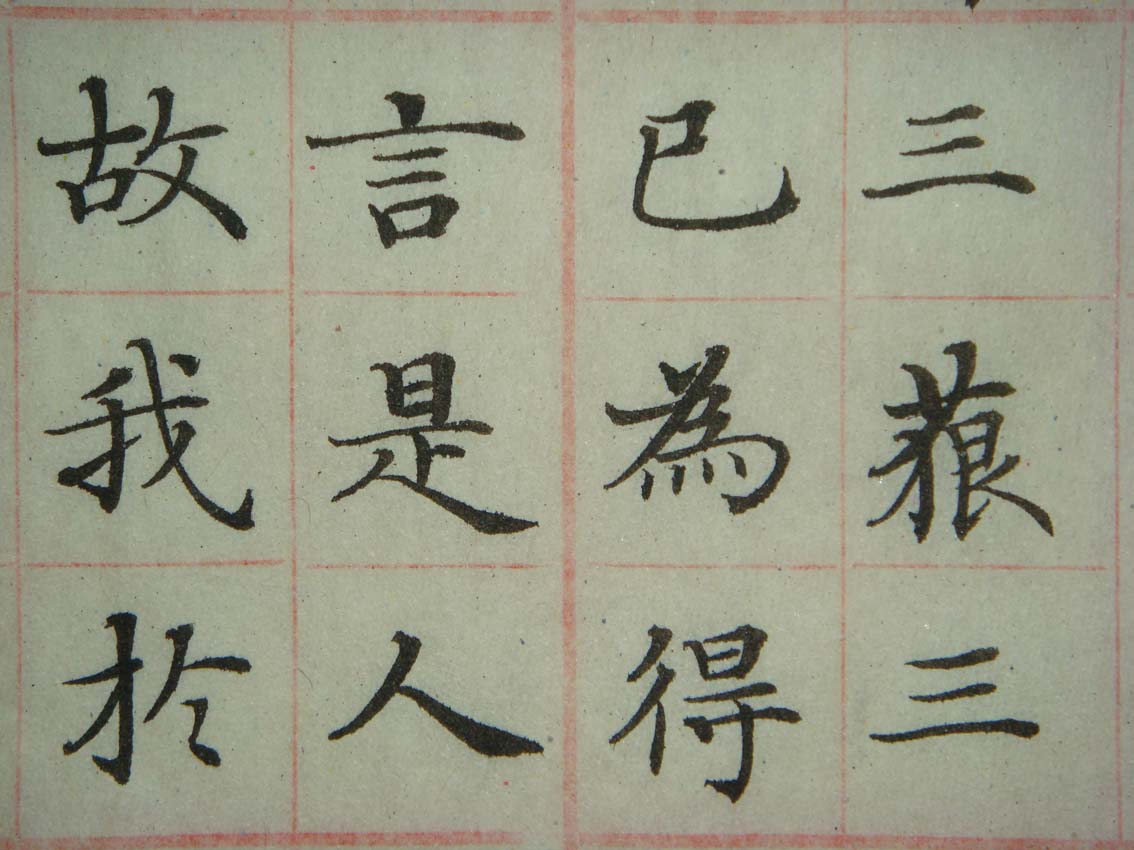 三藐三
已為得
言是人
故我於